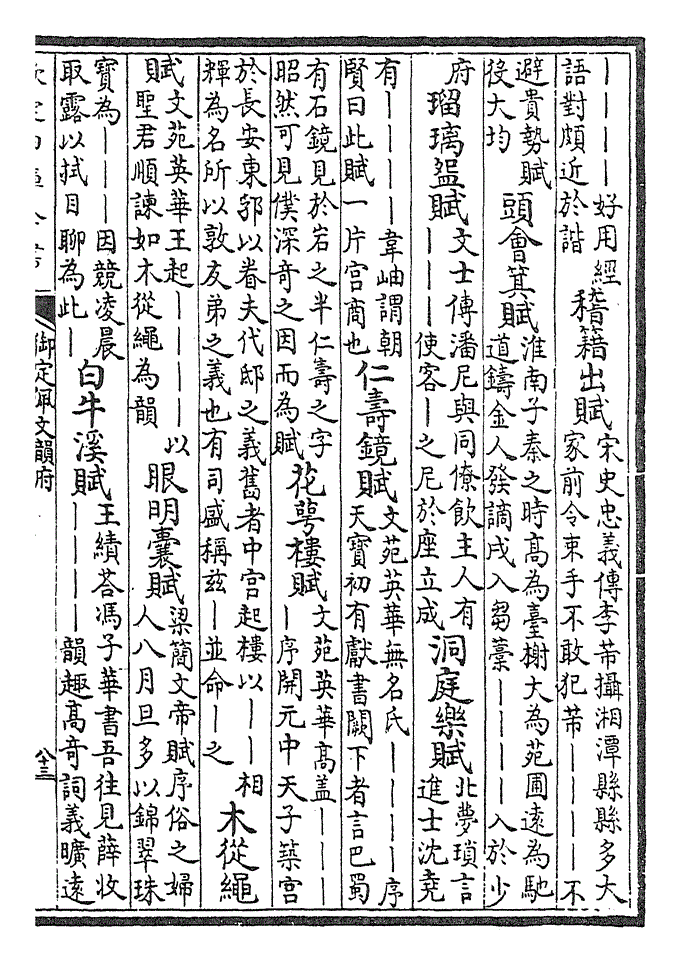 ｜｜｜｜好用經
語對頗近於諧
稽籍出賦
宋史忠義傳李芾攝湘潭縣縣多大
家前令束手不敢犯芾｜｜｜｜不
避貴勢賦
役大均
頭會箕賦
淮南子秦之時高為臺榭大為苑囿遠為馳
道鑄金人發謫戍入芻藁｜｜｜｜入於少
府
瑠璃盌賦
文士傳潘尼與同僚飲主人有
｜｜｜使客｜之尼於座立成
洞庭樂賦
北夢瑣言
進士沈堯
有｜｜｜｜韋岫謂朝
賢曰此賦一片宮商也
仁壽鏡賦
文苑英華無名氏｜｜｜｜序
天寶初有獻書闕下者言巴蜀
有石鏡見於岩之半仁壽之字
昭然可見僕深奇之因而為賦
花萼樓賦
文苑英華高蓋｜｜｜
｜序開元中天子築宮
於長安東郛以眷夫代邸之義舊者中宮起樓以｜｜相
輝為名所以敦友弟之義也有司盛稱茲｜並命｜之
木從繩
賦
文苑英華王起｜｜｜｜以
聖君順諫如木從繩為韻
眼明囊賦
梁簡文帝賦序俗之婦
人八月旦多以錦翠珠
寶為｜｜｜｜因競凌晨
取露以拭目聊為此｜
白牛溪賦
王績荅馮子華書吾往見薛收
｜｜｜｜韻趣高奇詞義曠遠
欽定四庫全書
御定佩文韻府
八十三